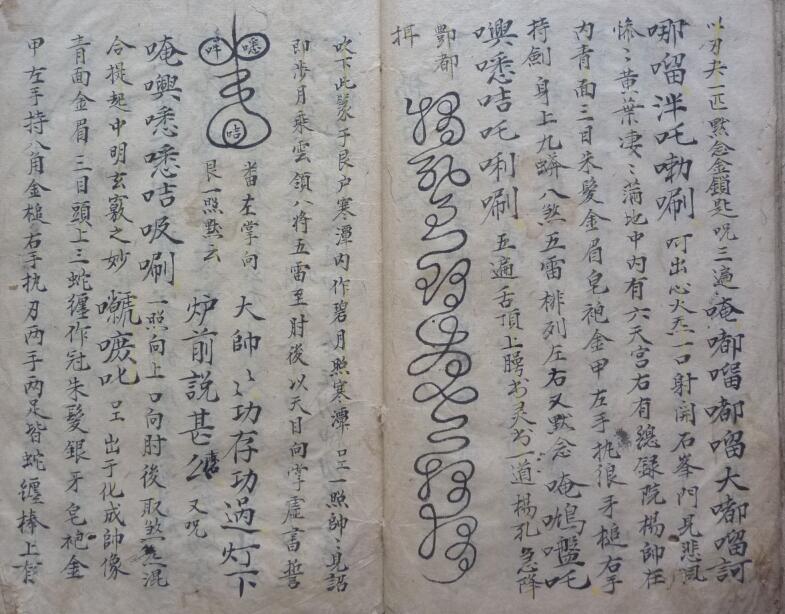 以刃夬一匹默念金鎖匙咒三遍唵嘟㗰嘟㗰大嘟㗰訶
哪㗰泮吒嘞唰 呵出心火炁一口射開石峯門見悲風
慘〻黄葉凄〻蒲地中内有六天宫右有總録院楊帥在
内青面三目朱髪金眉皂袍金甲左手执狼牙槌右手
持劍身上九蟒八煞五雷排列左右又默念唵 吒
噢㗭咭吒唎唰 五遍舌頂上腭书灵书一道楊孔 急降
酆都
吹下此篆于艮户寒潭内作碧月照寒潭 一照帥〻見詔
即步月乘雲領八将五雷至肘後以天目向掌虚書誓
㗭 吽 咭
當左掌向
艮一照默云
大帥〻功存功過灯下
炉前說甚么 又咒
唵噢㗭㗭咭吸唰 一照向上口向肘後取煞炁混
合提起中明玄竅之妙 叱 出于化成帥像
青面金眉三目頭上三蛇纏作冠朱髪銀牙皂袍金
甲左手持八角金槌右手执刃两手两足皆蛇纏棒上有